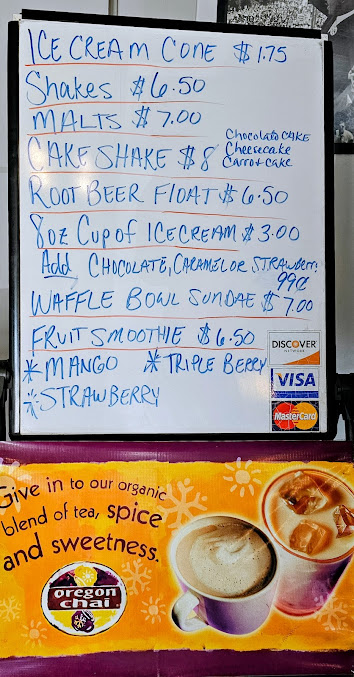 ICE CREAM CONE $1.75
Shakes $6.50
MALTS $7.00
CAKE SHAKE $8
Chocolate CAKE
Cheesecake
Carrot cake
ROOT BEER FLOAT $6.50
8oz Cup of ICE CREAM $3.00
Add CHOCOLATE, CARAMEL OR STRAWBERRY
99¢
WAFFLE BOWL SUNDAE $7.00
FRUIT SMOOTHIE $6.50
*MANGO *TRIPLE BERRY
*STRAWBERRY
DISCOVER
NETWORK
VISA
MasterCard
Give in to our organic
blend of tea, spice
and sweetness.
oregon
chai